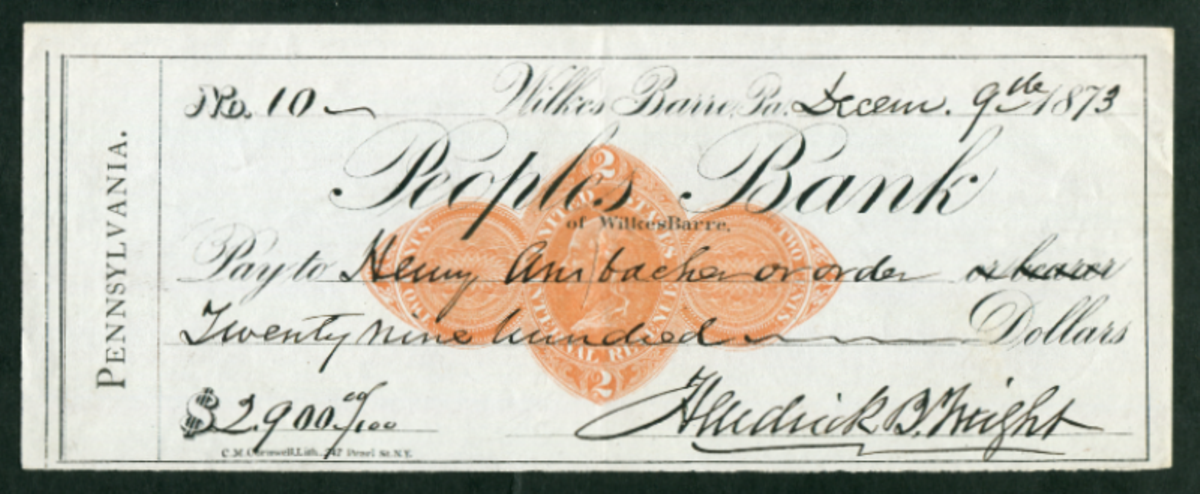 PENNSYLVANIA.
No. 10
Wilkes Barre, Pa. Decem. 9th 1873
Peoples Bank
of WilkesBarre,
Pay to Henry Ansbacher or order or bearer
Twenty nine hundred Dollars
$2.900 00/100
Hendrick B. Wright
Pearl St. N.Y.
UNITED STATES
INTERNAL REVENUE
TWO CENTS
TWO CENTS.
2
2